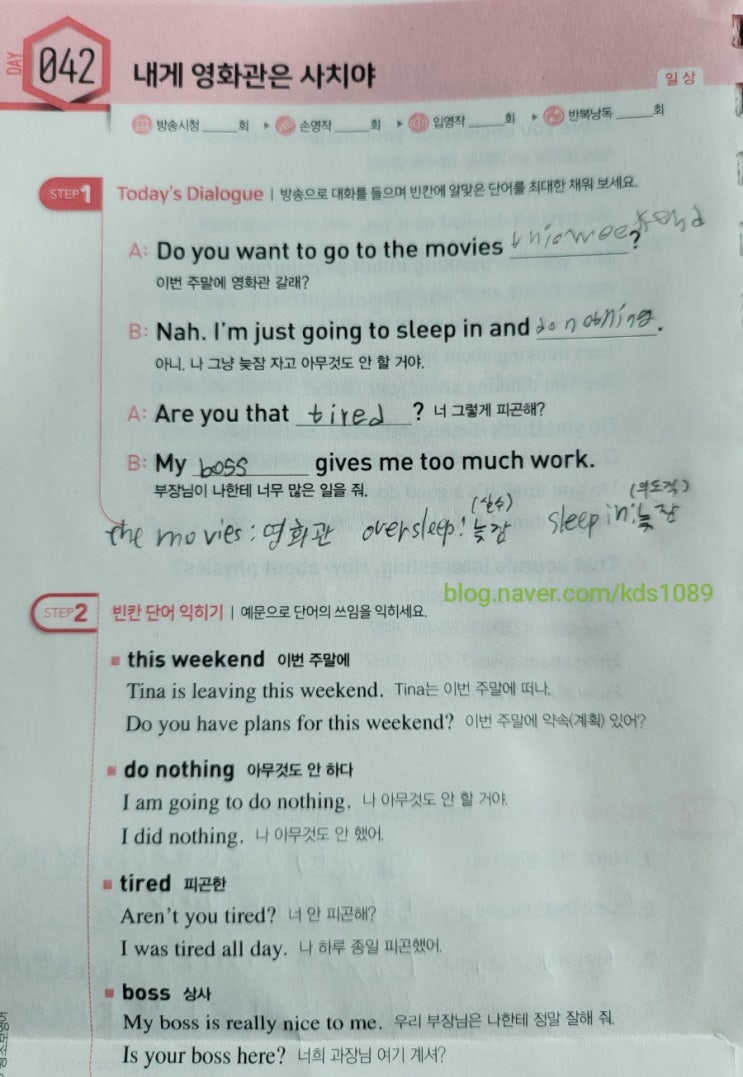 DAY 042 내게 영화관은 사치야
일상
방송시청 ____회 ▸ 손영작 ____회 ▸ 입영작 ____회 ▸ 반복낭독 ____회
STEP1 Today's Dialogue | 방송으로 대화를 들으며 빈칸에 알맞은 단어를 최대한 채워 보세요.
A: Do you want to go to the movies this weekend?
이번 주말에 영화관 갈래?
B: Nah. I'm just going to sleep in and do nothing.
아니. 나 그냥 늦잠 자고 아무것도 안 할 거야.
A: Are you that tired? 너 그렇게 피곤해?
B: My boss gives me too much work.
부장님이 나한테 너무 많은 일을 줘.
(실수) (의도적)
the movies: 영화관 oversleep: 늦잠 sleep in: 늦잠
blog.naver.com/kds1089
STEP2 빈칸 단어 익히기 | 예문으로 단어의 쓰임을 익히세요.
this weekend 이번 주말에
Tina is leaving this weekend. Tina는 이번 주말에 떠나.
Do you have plans for this weekend? 이번 주말에 약속(계획) 있어?
do nothing 아무것도 안 하다
I am going to do nothing. 나 아무것도 안 할 거야.
I did nothing. 나 아무것도 안 했어.
tired 피곤한
Aren't you tired? 너 안 피곤해?
I was tired all day. 나 하루 종일 피곤했어.
boss 상사
My boss is really nice to me. 우리 부장님은 나한테 정말 잘해 줘.
Is your boss here? 너희 과장님 여기 계셔?